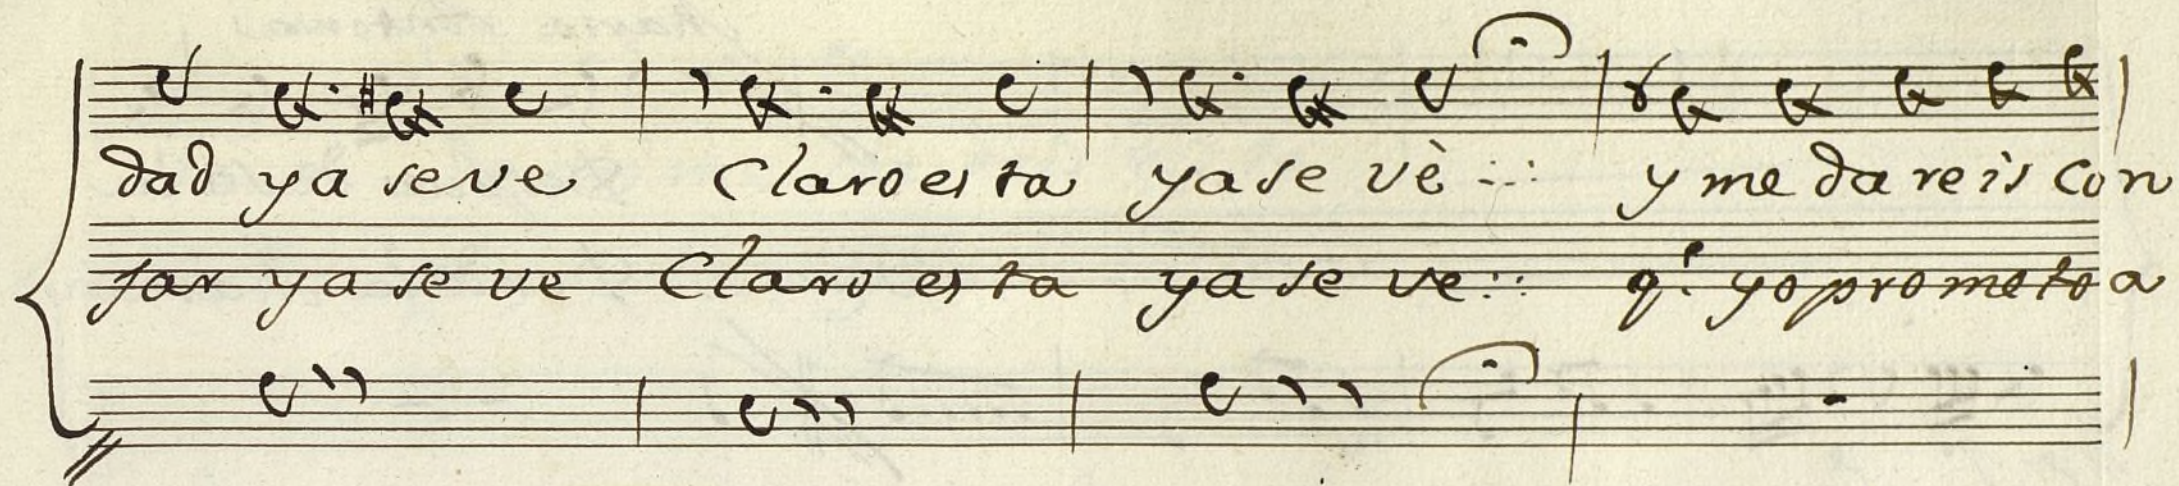 dad ya se ve Claro esta ya se vè y me da re is con
sar ya se ve Claro es ta ya se ve q.e yo prometo a